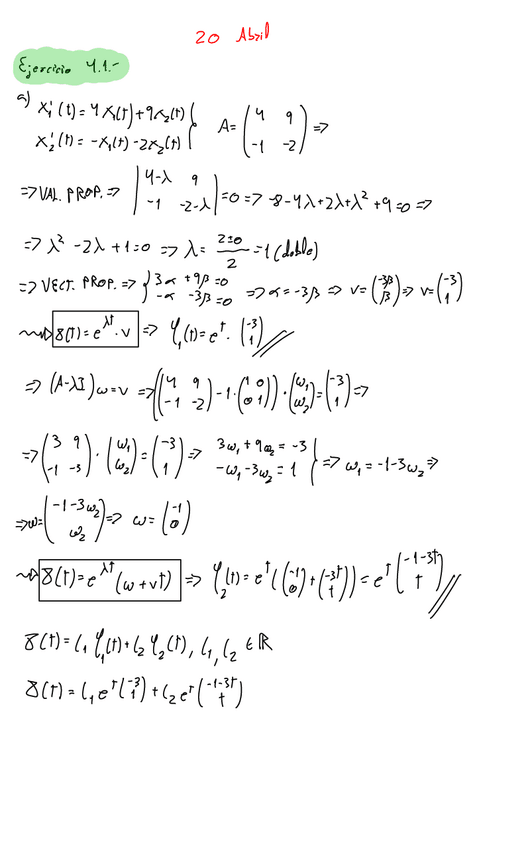 20 Abril
Ejercicio 4.1.-
a) x₁'(t) = 4x₁(t) + 9x₂(t) } A = (4 9; -1 -2) =>
x₂'(t) = -x₁(t) - 2x₂(t)
=> VAL. PROP. => |4-λ 9; -1 -2-λ| = 0 => -8-4λ+2λ+λ²+9=0 =>
=> λ² - 2λ + 1 = 0 => λ = (2±0)/2 = 1 (doble)
=> VECT. PROP. => { 3α + 9β = 0; -α - 3β = 0 => α = -3β => v = (-3β; β) => v = (-3; 1)
~> X(t) = e^λt · v => φ₁(t) = e^t · (-3; 1) //
=> (A-λI)ω = v => ((4 9; -1 -2) - 1·(1 0; 0 1)) · (ω₁; ω₂) = (-3; 1) =>
=> (3 9; -1 -3) · (ω₁; ω₂) = (-3; 1) => 3ω₁ + 9ω₂ = -3; -ω₁ - 3ω₂ = 1 } => ω₁ = -1-3ω₂ =>
=> ω = (-1-3ω₂; ω₂) => ω = (-1; 0)
~> X(t) = e^λt (ω + vt) => φ₂(t) = e^t ((-1; 0) + (-3t; t)) = e^t (-1-3t; t) //
X(t) = C₁ φ₁(t) + C₂ φ₂(t), C₁, C₂ ∈ ℝ
X(t) = C₁ e^t (-3; 1) + C₂ e^t (-1-3t; t)